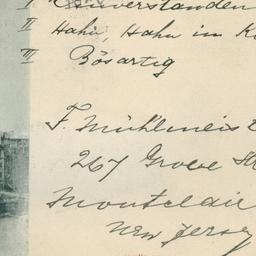 I Einverstanden
II Hahn, Hahn im K
III Bösartig
F. Mühlmeis
267 Grove St
Montclair
New Jersey